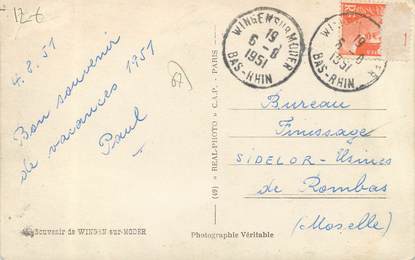 12-6
4.8.51
Bon souvenir
de vacances 1951
Paul
WINGEN SUR MODER
19
6-8
1951
BAS-RHIN
WINGEN
MODER
19
6-8
1951
BAS-RHIN
Bureau
Finissage
SIDELOR - Usines
de Rombas
(Moselle)
(49) « REAL-PHOTO » C.A.P. - PARIS
Souvenir de WINGEN-sur-MODER
Photographie Véritable